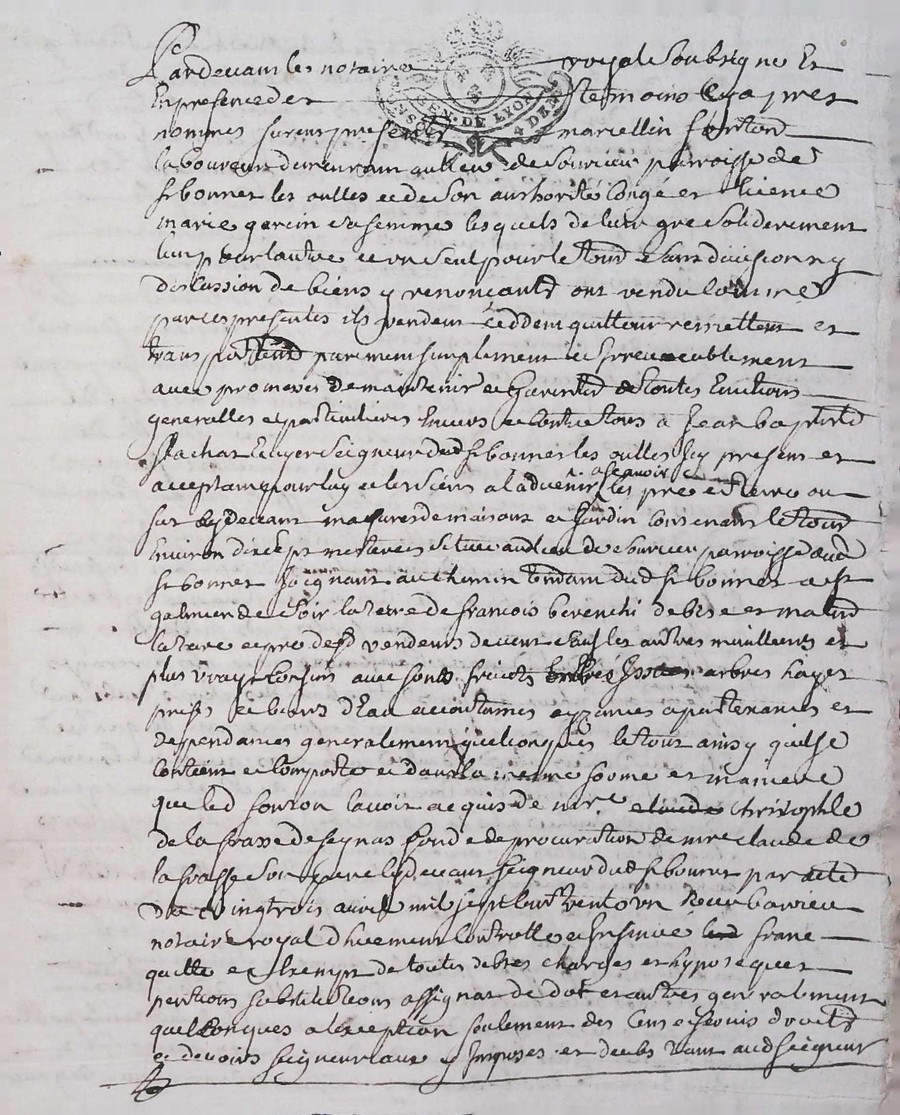 Pardevant les notaire royal soubsigne Et
En presence des tesmoins cy apres
nommes furent presents marcellin fonton
laboureur demeurant au lieu de Souvieu parroisse de
st bonnet les oulles et de son authorité conge et licence
marie garin sa femme lesquels de leur gre soliderement
lun pour lautre et un seul pour le tout sans division ny
discussion de biens y renonçants ont vendu comme
par ces presentes ils vendent ceddent quittent remettent et
transportent purement simplement et irrevocablement
avec promesses de maintenir et garentir de toutes Evictions
generalles et particulieres Envers et contre tous à Jean baptiste
Stachat Ecuyer Seigneur dud st bonnet les oulles icy present et
acceptant pour luy et les siens a ladvenir ascavoir les pre et terre ou
sur cy devant masures de maisons et Jardin contenants le tout
Environ dix sept mesterees Situe aud lieu de Souvieu parroisse dud
st bonnet Joignant au chemin tendant dud st bonnet a st
galmier de Soir la terre de francois berenchi de bise et matin
la terre et pre desd vendeurs de vent Sauf les autres meilleurs et
plus vrays confins avec fonds fruicts arbres hayes
prises et cours dEau accoutumes aysances apartenances et
dependances generalement quelconques le tout ainsy quil se
contient et comporte et dans la meme forme et maniere
que led fonton lavoit acquis de mre claude Christophle
de la frasse de seynas fonde de procuration de mre claude de
la frasse Son pere cy devant seigneur dud st bonnet par acte
du vingt trois avril mil sept cent vent un Receu barrieu
notaire royal duement controlle et Insinue led franc
quitte et Exempt de toutes debtes charges et hypoteques
pentions substitutions assignat de dot et autres generalement
quelconques a lexception seulement des Cens et servis droits
et devoirs Seigneuriaux y Imposes et deubs tant aud seigneur